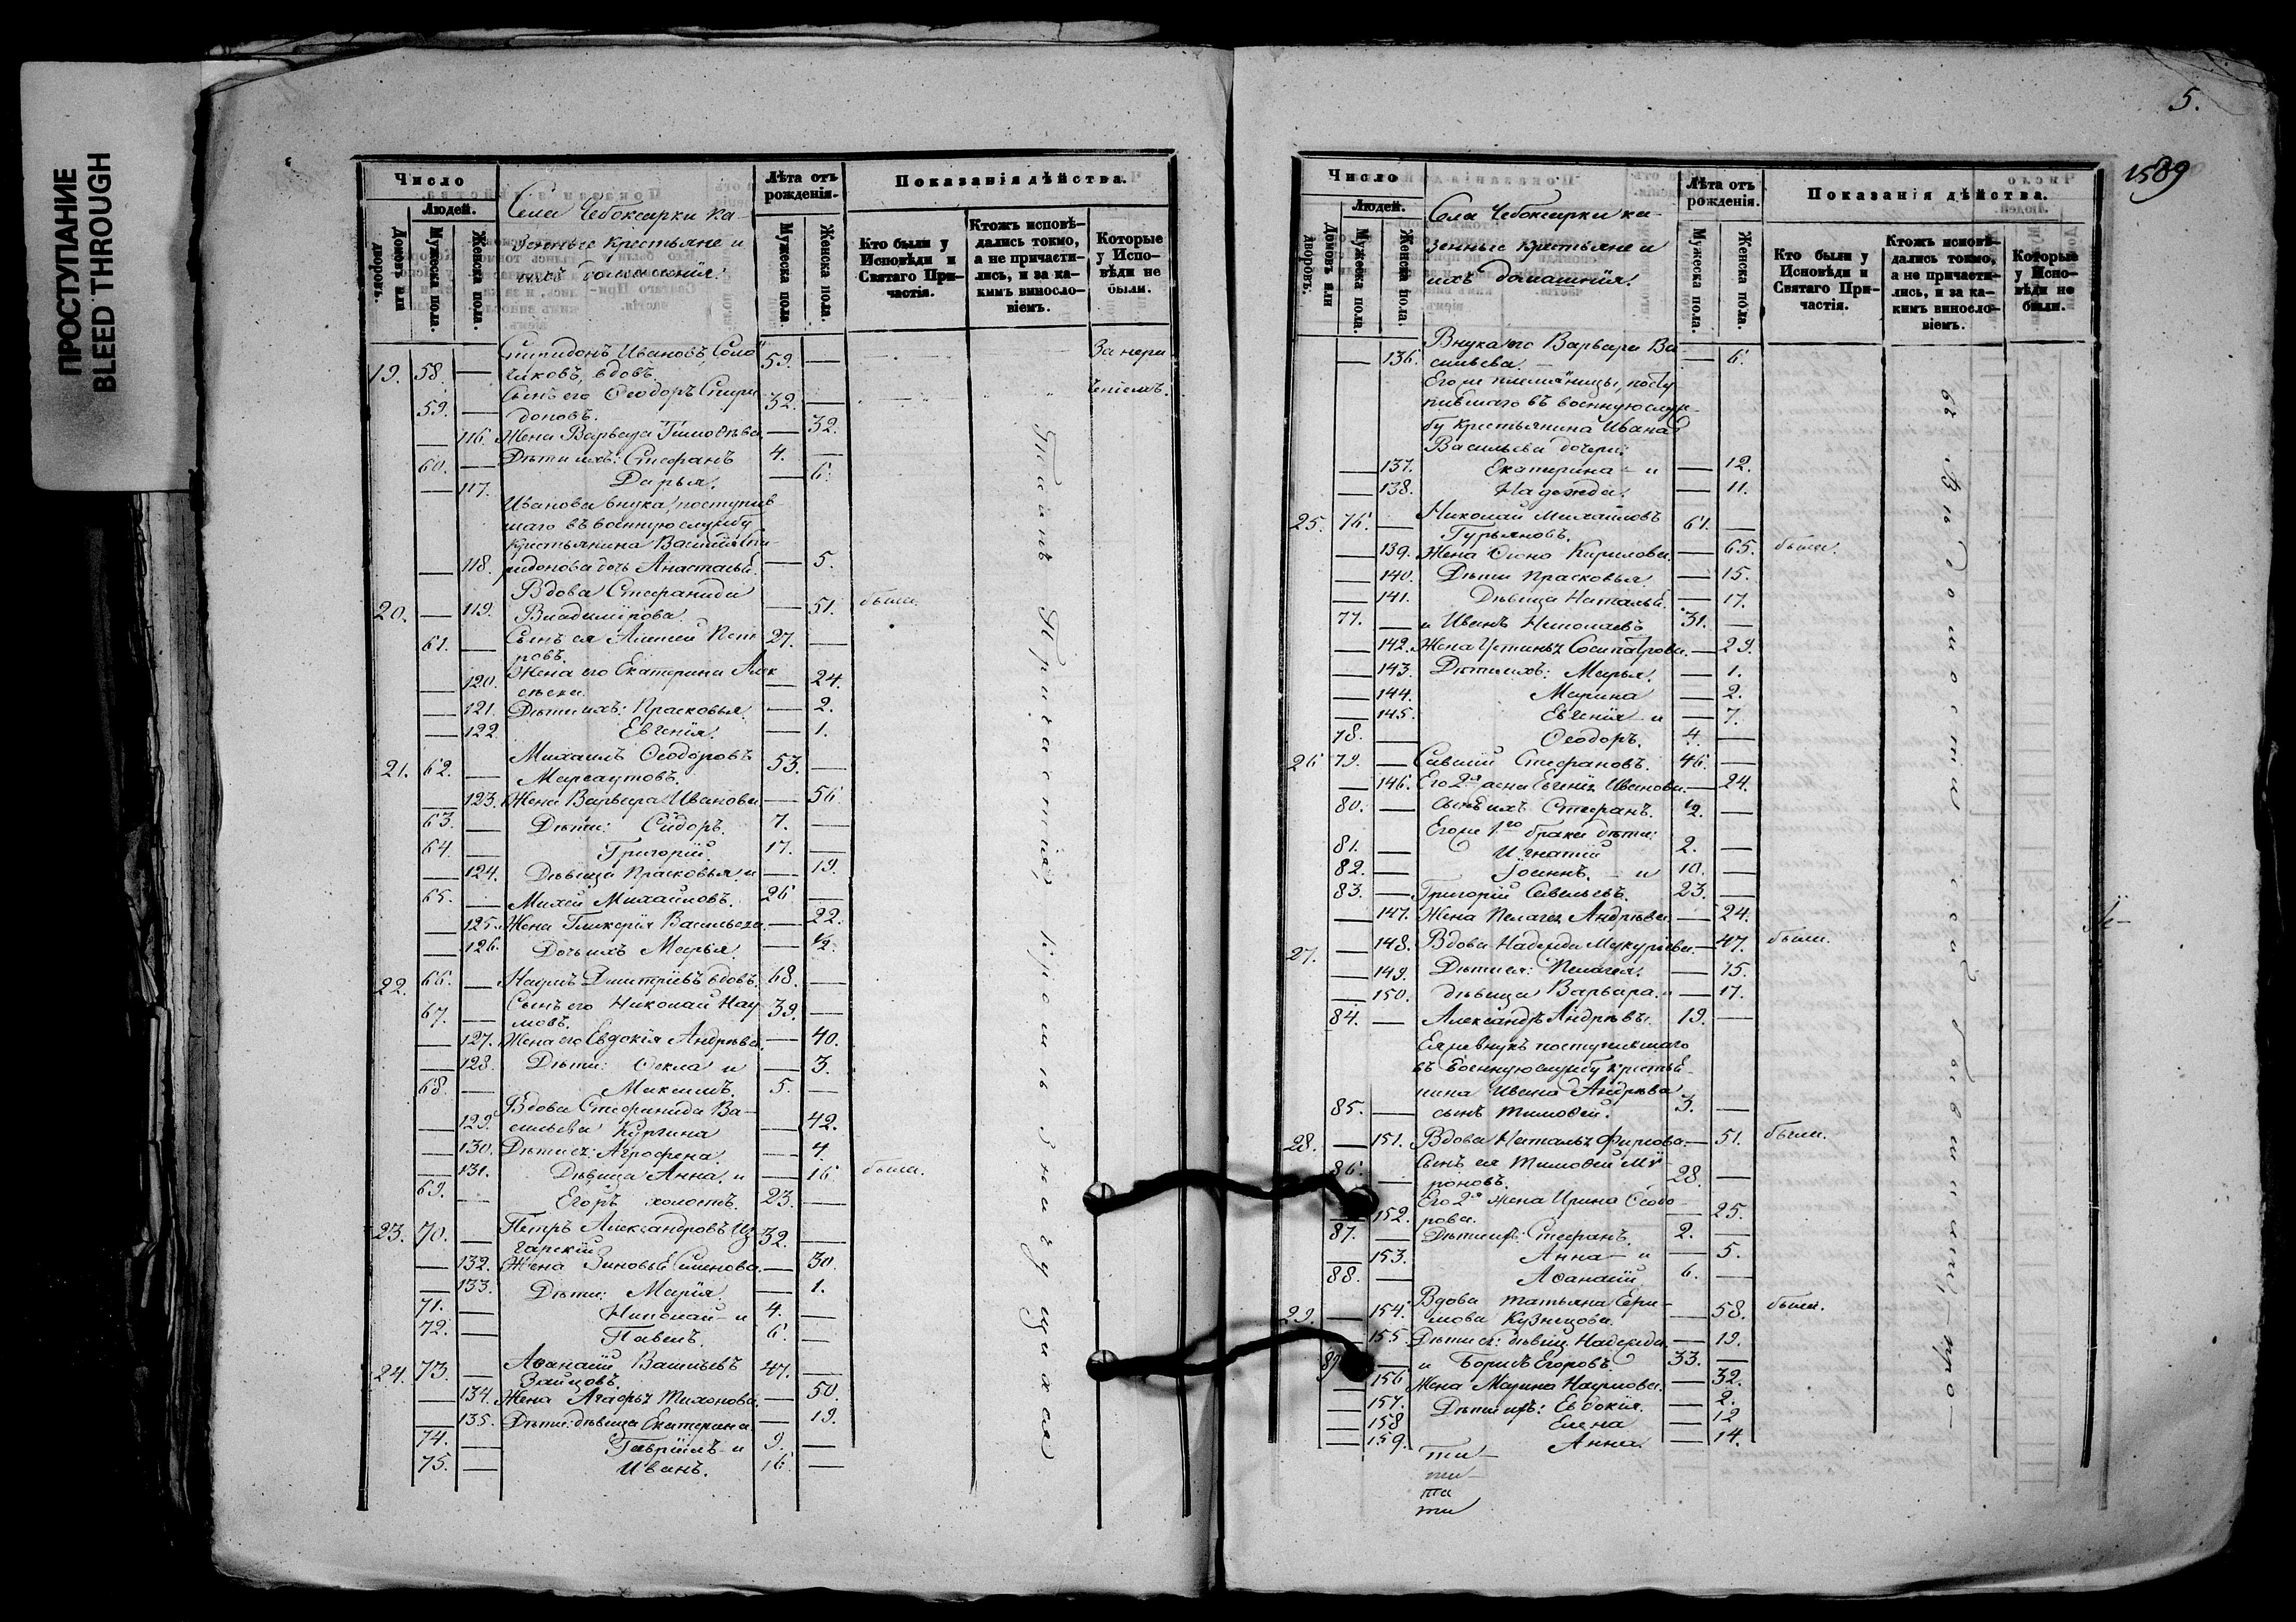 ПРОСТУПАНИЕ
BLEED THROUGH
Число
Людей.
Домовъ или дворовъ.
Мужеска пола.
Женска пола.
Села Чебоксарки ка-
зенные крестьяне и
ихъ домашнія.
Лѣта отъ рожденія.
Мужеска пола.
Женска пола.
Показанія дѣйства.
Кто были у Исповѣди и Святаго Причастія.
Ктожъ исповѣдались токмо, а не причастились, и за какимъ винословіемъ.
Которые у Исповѣди не были.
19. 58. — Спиридонъ Ивановъ
чиковъ, вдовъ. 59. —
59. — Сынъ его Ѳеодоръ Спири
доновъ. 32. —
— 116. Жена Варвара Тимоѳѣева — 32.
60. — Дѣти ихъ: Стефанъ 4. —
— 117. Дарья. — 6.
Иванова внука, поступив
шаго въ военную службу
крестьянина Василія Спи-
— 118. ридонова дочь Анастасья. — 5.
Вдова Стефанида
20. — 119. Владимірова. — 51. была.
61. — Сынъ ея Алексей Пет
ровъ. 27. —
— 120. Жена его Екатерина Алек
сѣева. — 24.
— 121. Дѣти ихъ: Прасковья. — 2.
— 122. Евгенія. — 1.
21. 62. — Михаилъ Ѳеодоровъ
53. —
— 123. Жена Варвара Иванова — 56
63. — Дѣти: Сидоръ. 7. —
64. — Григорій. 17. —
— 124. Дѣвица Прасковья и — 19.
65. — Михайловъ. 26 —
— 125. Жена Гликерія Васильева — 22.
— 126. Дочь ихъ Марья. — 1/2.
22. 66. — Наумъ Дмитріевъ вдовъ. 68. —
67. — Сынъ его Николай Нау
мовъ. 39. —
— 127. Жена его Евдокія Андрѣева. — 40.
— 128. Дѣти: Ѳекла и — 3.
68. — Максимъ. 5. —
Вдова Стефанида Ва-
— 129. сильева — 42.
— 130. Дѣти ея: Агрофена. — 4.
— 131. Дѣвица Анна. и — 16 была.
69. — Егоръ холостъ. 23. —
23. 70. — Петръ Александровъ
32. —
— 132. Жена Зиновья Семенова. — 30.
— 133. Дѣти: Марія. — 1.
71. — Николай и 4. —
72. — Павелъ. 6. —
24. 73. — Аѳанасій Васильевъ
Зайцовъ. 47. —
— 134. Жена Агафья Тихонова. — 50
— 135. Дѣти: дѣвица Екатерина. — 19.
74. — Гавріилъ и 9. —
75. — Иванъ. 16 —
За нера
дѣніемъ.
Тайнъ Причастія, кромѣ значущихся
5.
1589
Число
Людей.
Домовъ или дворовъ.
Мужеска пола.
Женска пола.
Села Чебоксарки ка-
зенные крестьяне и
ихъ домашнія.
Лѣта отъ рожденія.
Мужеска пола.
Женска пола.
Показанія дѣйства.
Кто были у Исповѣди и Святаго Причастія.
Ктожъ исповѣдались токмо, а не причастились, и за какимъ винословіемъ.
Которые у Исповѣди не были.
Внука его Варвара Ва
— 136. сильева. — 6.
Его же племянницы, посту
пившаго въ военную служ-
бу крестьянина Ивана
Васильева дочери:
— 137. Екатерина и — 12.
— 138. Надежда. — 11.
25. 76. — Николай Михайловъ
Гурьяновъ. 61. —
— 139. Жена Кирилова. — 65. была.
— 140. Дѣти Прасковья — 15.
— 141. Дѣвица Наталья. — 17.
77. — и Иванъ Николаевъ 31. —
— 142. Жена Устинья Сосипатрова. — 29.
— 143. Дѣти ихъ: Марья. — 1.
— 144. Марина — 2.
— 145. Евгенія и — 7.
78. — Ѳеодоръ. 4. —
26 79. — Савелій Стефановъ. 46. —
— 146. Его 2я жена Евгенія Иванова. — 24.
80. — Сынъ ихъ Стефанъ. 1/2. —
Его же 1го брака дѣти:
81. — Игнатій 2. —
82. — Іоаннъ. и 10. —
83. — Григорій Савельевъ. 23. —
— 147. Жена Пелагея Андрѣева. — 24.
27. — 148. Вдова Надежда — 47. были.
— 149. Дѣти ея: Пелагея. — 15.
— 150. дѣвица Варвара. и — 17.
84. — Александръ Андрѣевъ. 19. —
Ея же внукъ поступившаго
въ военную службу крестья-
нина Ивана Андрѣева
85. — сынъ Тимоѳей. 3. —
28. — 151. Вдова Наталья Фирсова. — 51. были.
86. — Сынъ ея Тимоѳей Мѵ
роновъ. 28. —
Его 2я жена Ирина Ѳеодо
— 152. рова. — 25.
87. — Дѣти ихъ: Стефанъ. 2. —
— 153. Анна и — 5.
88. — Аѳанасій 6. —
29. — 154. Вдова Татьяна Ера-
мова Кузнецова. — 58. была.
— 155. Дѣти ея: дѣвиц. Надежда — 19.
89. — и Борисъ Егоровъ. 33. —
— 156 Жена Марина Наумова. — 32.
— 157. Дѣти ихъ: Евдокія. — 2.
— 158 Елена — 12
— 159. Анна. — 14.
ти-
ти-
та
ти